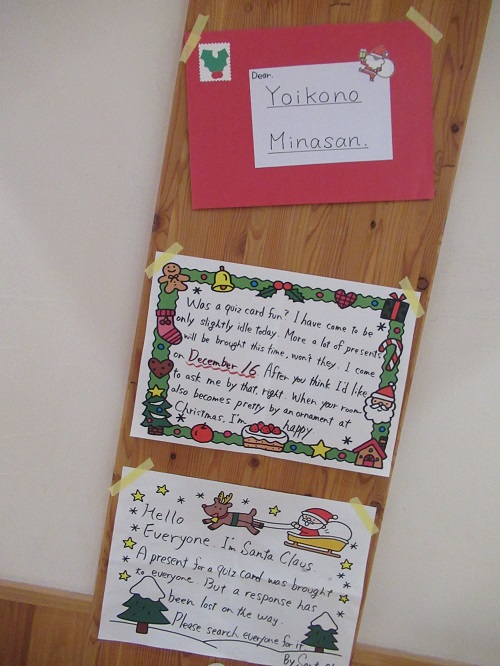 Dear.
Yoikono
Minasan.
Was a quiz card fun? I have come to be
only slightly idle today. More a lot of presents
will be brought this time, won't they. I come
on December 16 After you think I'd like
to ask me by that, right. When your room
also becomes pretty by an ornament at
Christmas, I'm happy.
Hello
Everyone. I'm Santa Claus.
A present for a quiz card was brought
to everyone. But a response has
been lost on the way.
Please search everyone for it
By